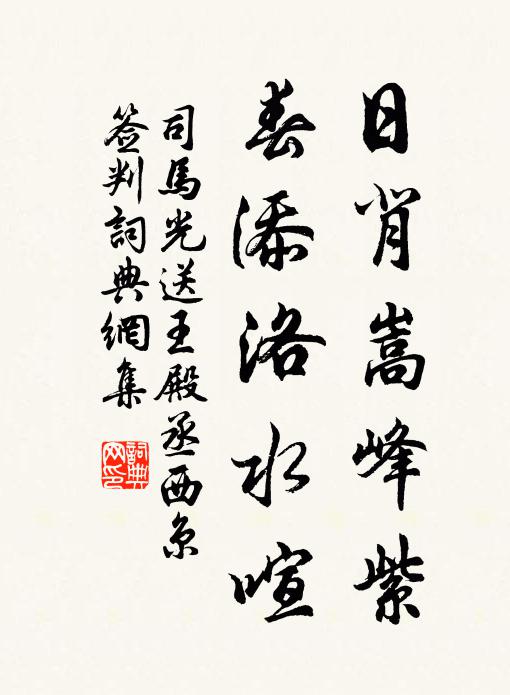 日背嵩峰紫
春添洛水喧
司馬光送王殿丞西京
簽判詞典網集
詞典
网印